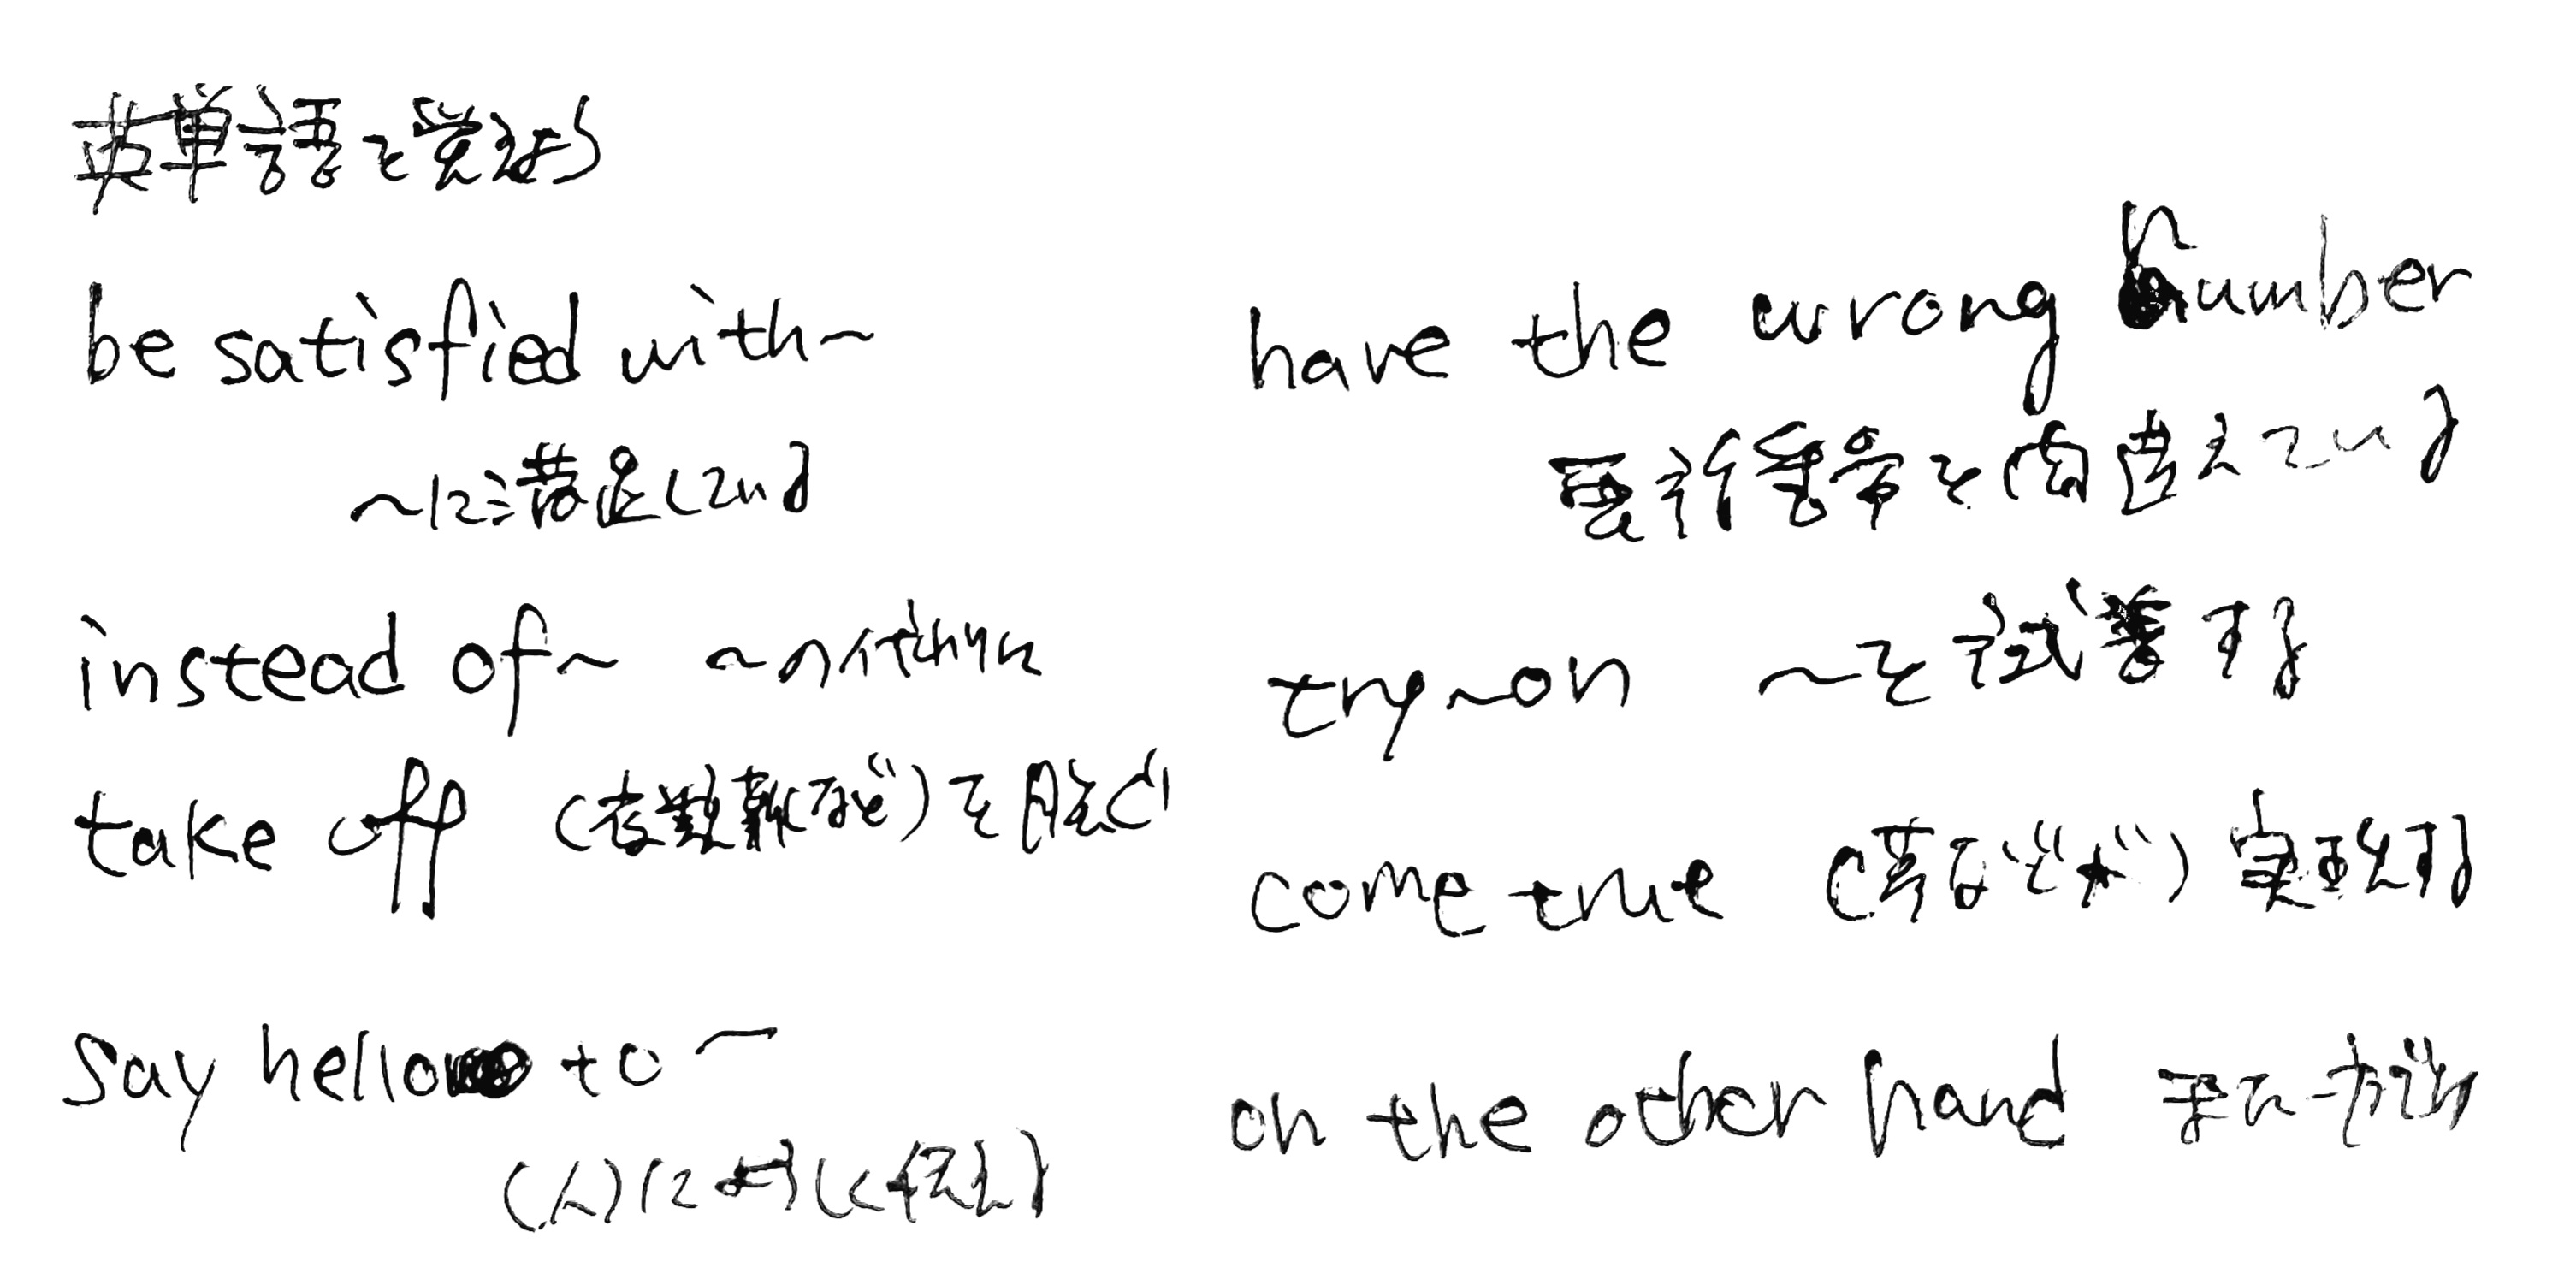 英単語を覚えよう
be satisfied with~
~に満足している
instead of~ ~の代わりに
take off (衣類靴など)を脱ぐ
say hello to ~
(人)によろしく伝える
have the wrong number
電話番号を間違えている
try~on ~を試着する
come true (夢などが)実現する
on the other hand また一方では